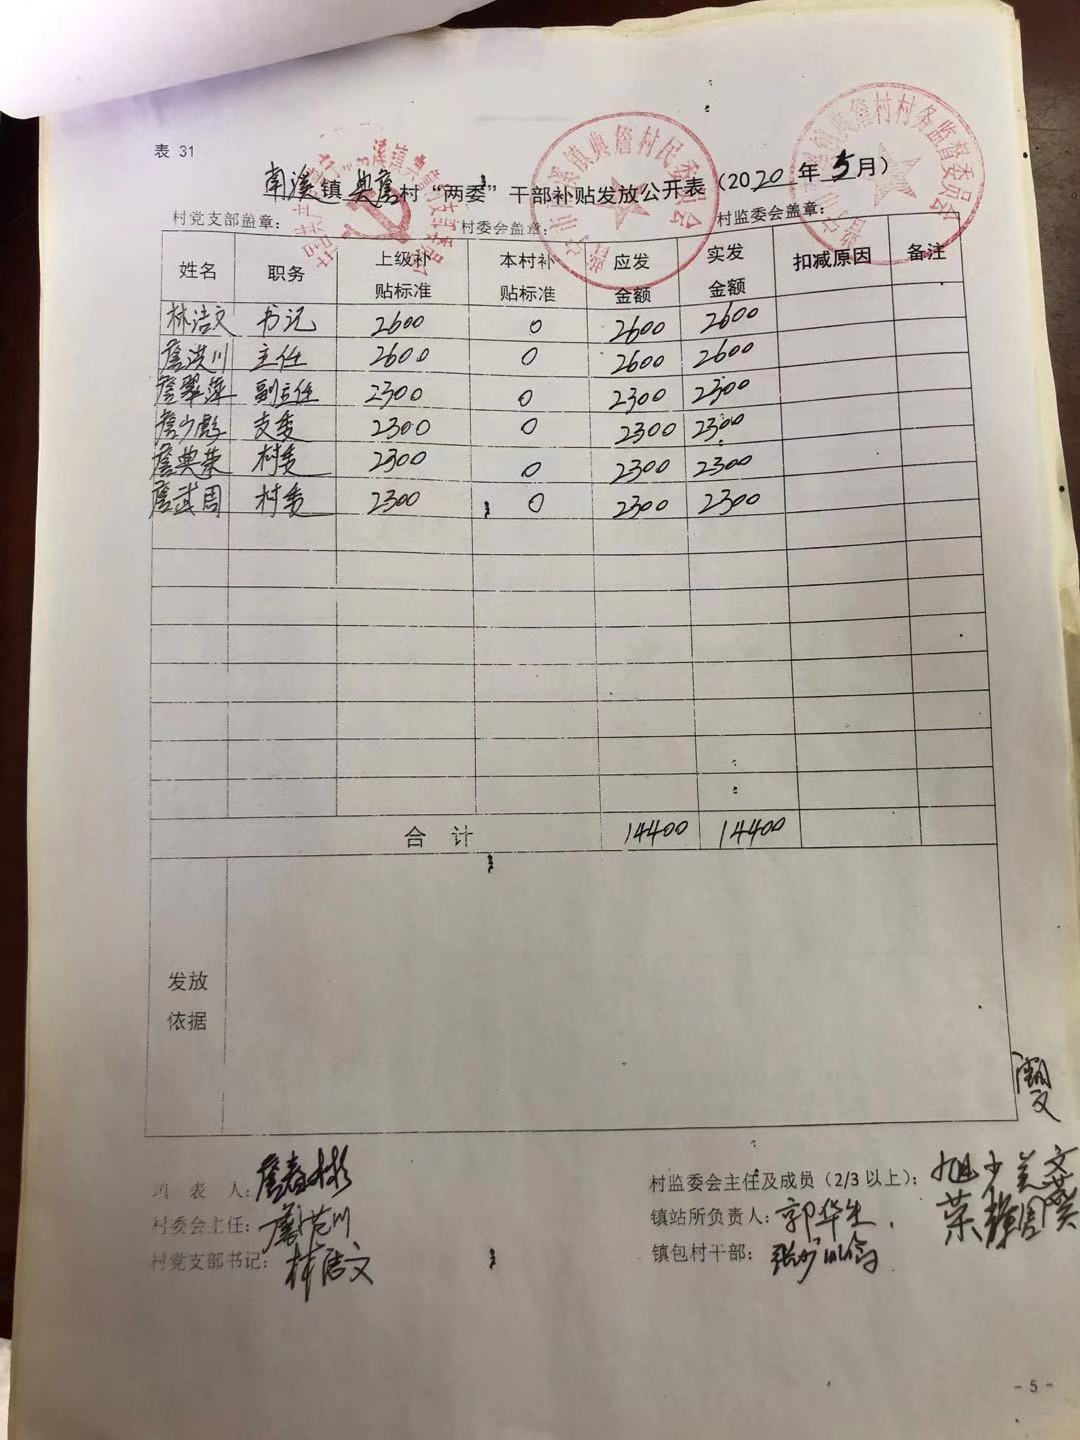 表 31
南溪镇典詹村“两委”干部补贴发放公开表（2020年5月）
村党支部盖章： 村委会盖章： 村监委会盖章：
姓名 职务 上级补贴标准 本村补贴标准 应发金额 实发金额 扣减原因 备注
林洁文 书记 2600 0 2600 2600
詹洪川 主任 2600 0 2600 2600
詹翠萍 副主任 2300 0 2300 2300
詹少彪 支委 2300 0 2300 2300
詹典荣 村委 2300 0 2300 2300
詹武周 村委 2300 0 2300 2300
合 计 14400 14400
发放依据
填 表 人：詹春彬
村委会主任：
村党支部书记：林洁文
村监委会主任及成员（2/3以上）：
镇站所负责人：郭华生
镇包村干部：
溪镇典詹村民委员会
镇典詹村村务监督委员会
- 5 -